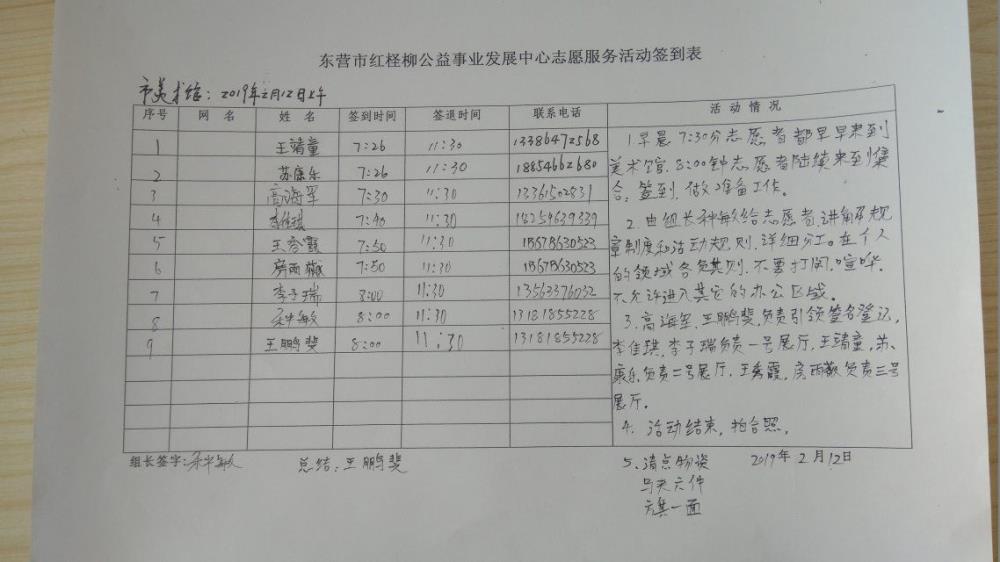 东营市红柽柳公益事业发展中心志愿服务活动签到表
市美术馆：2019年2月12日上午
序号 网 名 姓 名 签到时间 签退时间 联系电话 活 动 情 况
1 王靖童 7:26 11:30 13386472568
2 苏康乐 7:26 11:30 18854662680
3 高海军 7:30 11:30 13361502831
4 李佳琪 7:40 11:30 18254639339
5 王秀霞 7:50 11:30 15675630523
6 房西薇 7:50 11:30 15675630523
7 李子瑞 8:00 11:30 13563376032
8 敏 8:00 11:30 13181855228
9 王鹏斐 8:00 11:30 13181855228
1.早晨7:30分志愿者都早早来到
美术馆.8:00钟志愿者陆续来到集
合,签到,做准备工作。
2.由组长敏给志愿者讲解规
章制度和活动规则,详细分工。在个人
的领域各负其则,不要打闹,喧哗.
不允许进入其它的办公区域。
3.高海军,王鹏斐,负责引领签名登记,
李佳琪,李子瑞负责一号展厅,王靖童,苏
康乐负责二号展厅,王秀霞,房西薇负责三号
展厅。
4.活动结束,拍合照。
组长签字：敏 总结：王鹏斐
5.清点物资 2019年2月12日
马夹六件
方旗一面